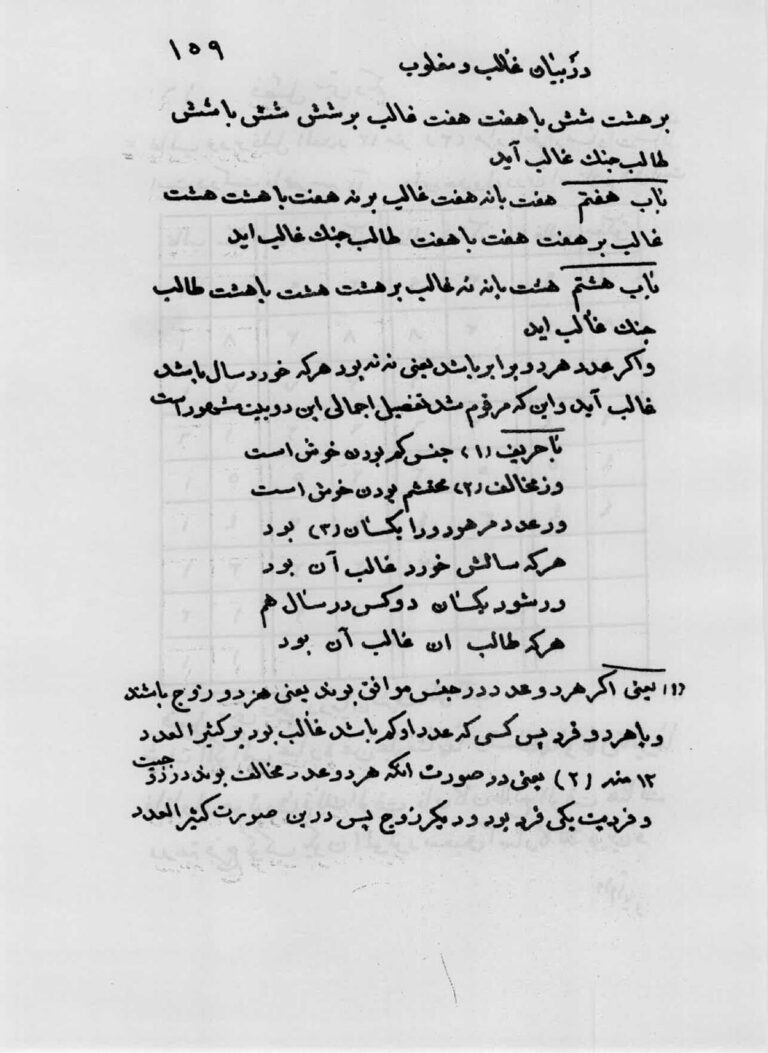 ۱۵۹
در بیان غالب و مغلوب
بر هشت شش با هفت هفت غالب بر شش شش با شش
طالب جنك غالب آید
باب هفتم هفت بانه هفت غالب بر نه هفت با هشت هشت
غالب بر هفت هفت با هفت طالب جنك غالب اید
باب هشتم هشت بانه نه غالب بر هشت هشت با هشت طالب
جنك غالب اید
و اکر عدد هر دو برابر باشد یعنی نه نه بود هرکه خورد سال باشد
غالب آید و این که مرقوم شد تفصیل اجمالی این دو بیت مشهور است
با حریف (۱) جنس کم بودن خوش است
وز مخالف (۲) محتشم بودن خوش است
ور عدد مر هر دو را یکسان (۳) بود
هرکه سالش خورد غالب آن بود
ور شود یکسان دو کس در سال هم
هرکه طالب ان غالب آن بود
(۱) یعنی اکر هر دو عدد در جنس موافق بوند یعنی هر دو زوج باشند
و یا هر دو فرد پس کسی که عدد او کم باشد غالب بود بر کثیر العدد
۱۲ منه (۲) یعنی در صورت انکه هر دو عدد مخالف بوند در زوجیت
و فردیت یکی فرد بود و دیکر زوج پس درین صورت کثیر العدد